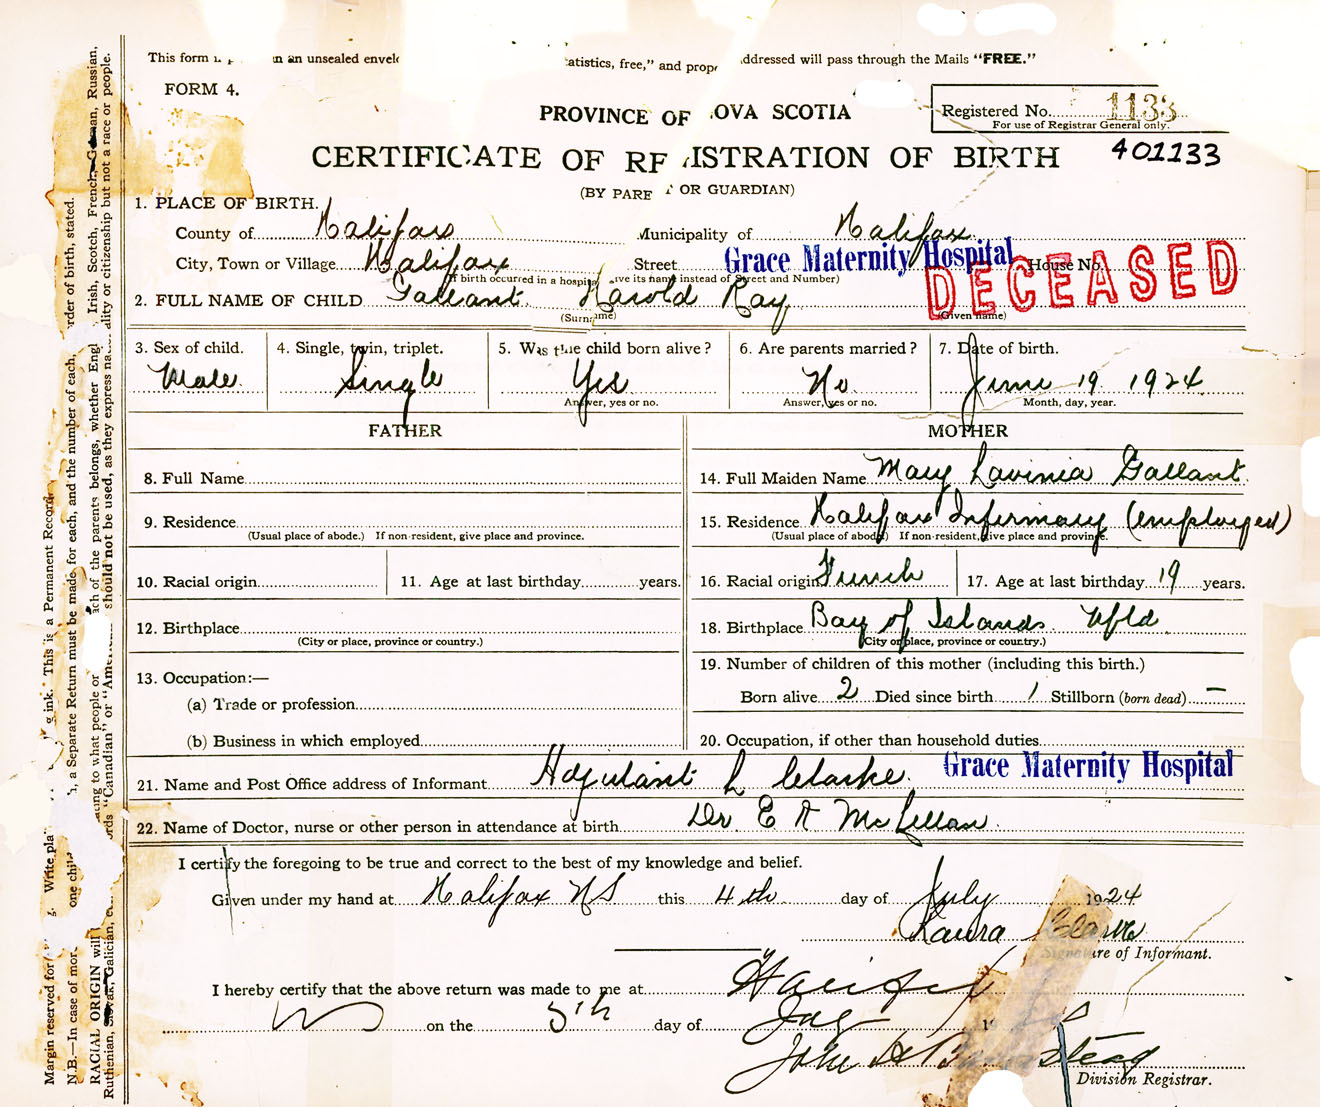 This form in an unsealed envel atistics, free," and prope addressed will pass through the Mails "FREE."
FORM 4.
PROVINCE OF OVA SCOTIA
Registered No. 1133
For use of Registrar General only.
CERTIFICATE OF RE ISTRATION OF BIRTH
401133
(BY PARE T OR GUARDIAN)
1. PLACE OF BIRTH.
County of Halifax Municipality of Halifax
City, Town or Village Halifax Street Grace Maternity Hospital House No.
(If birth occurred in a hospital give its name instead of Street and Number)
DECEASED
2. FULL NAME OF CHILD Gallant Harold Ray
(Surname) (Given name)
3. Sex of child. 4. Single, twin, triplet. 5. Was the child born alive? 6. Are parents married? 7. Date of birth.
Male Single Yes No June 19 1924
Answer, yes or no. Answer, yes or no. Month, day, year.
FATHER MOTHER
8. Full Name 14. Full Maiden Name Mary Lavinia Gallant
9. Residence 15. Residence Halifax Infirmary (employed)
(Usual place of abode.) If non-resident, give place and province. (Usual place of abode) If non-resident, give place and province.
10. Racial origin 11. Age at last birthday years. 16. Racial origin French 17. Age at last birthday 19 years.
12. Birthplace 18. Birthplace Bay of Islands Nfld
(City or place, province or country.) (City or place, province or country.)
13. Occupation:— 19. Number of children of this mother (including this birth.)
(a) Trade or profession Born alive 2 Died since birth 1 Stillborn (born dead) –
(b) Business in which employed 20. Occupation, if other than household duties
21. Name and Post Office address of Informant Adjutant L Clarke. Grace Maternity Hospital
22. Name of Doctor, nurse or other person in attendance at birth Dr E A McLellan
I certify the foregoing to be true and correct to the best of my knowledge and belief.
Given under my hand at Halifax NS this 4th day of July 1924
Laura Clarke
Signature of Informant.
I hereby certify that the above return was made to me at Halifax
on the 5th day of 19
John
Division Registrar.
Margin reserved for g. Write pla g ink. This is a Permanent Record
N.B.—In case of mor one chil , a Separate Return must be made for each, and the number of each, order of birth, stated.
RACIAL ORIGIN will ing to what people or ach of the parents belongs, whether Engl Irish, Scotch, French, German, Russian,
Ruthenian, Slovak, Galician, rds "Canadian" or "Ame should not be used, as they express na ality or citizenship but not a race or people.